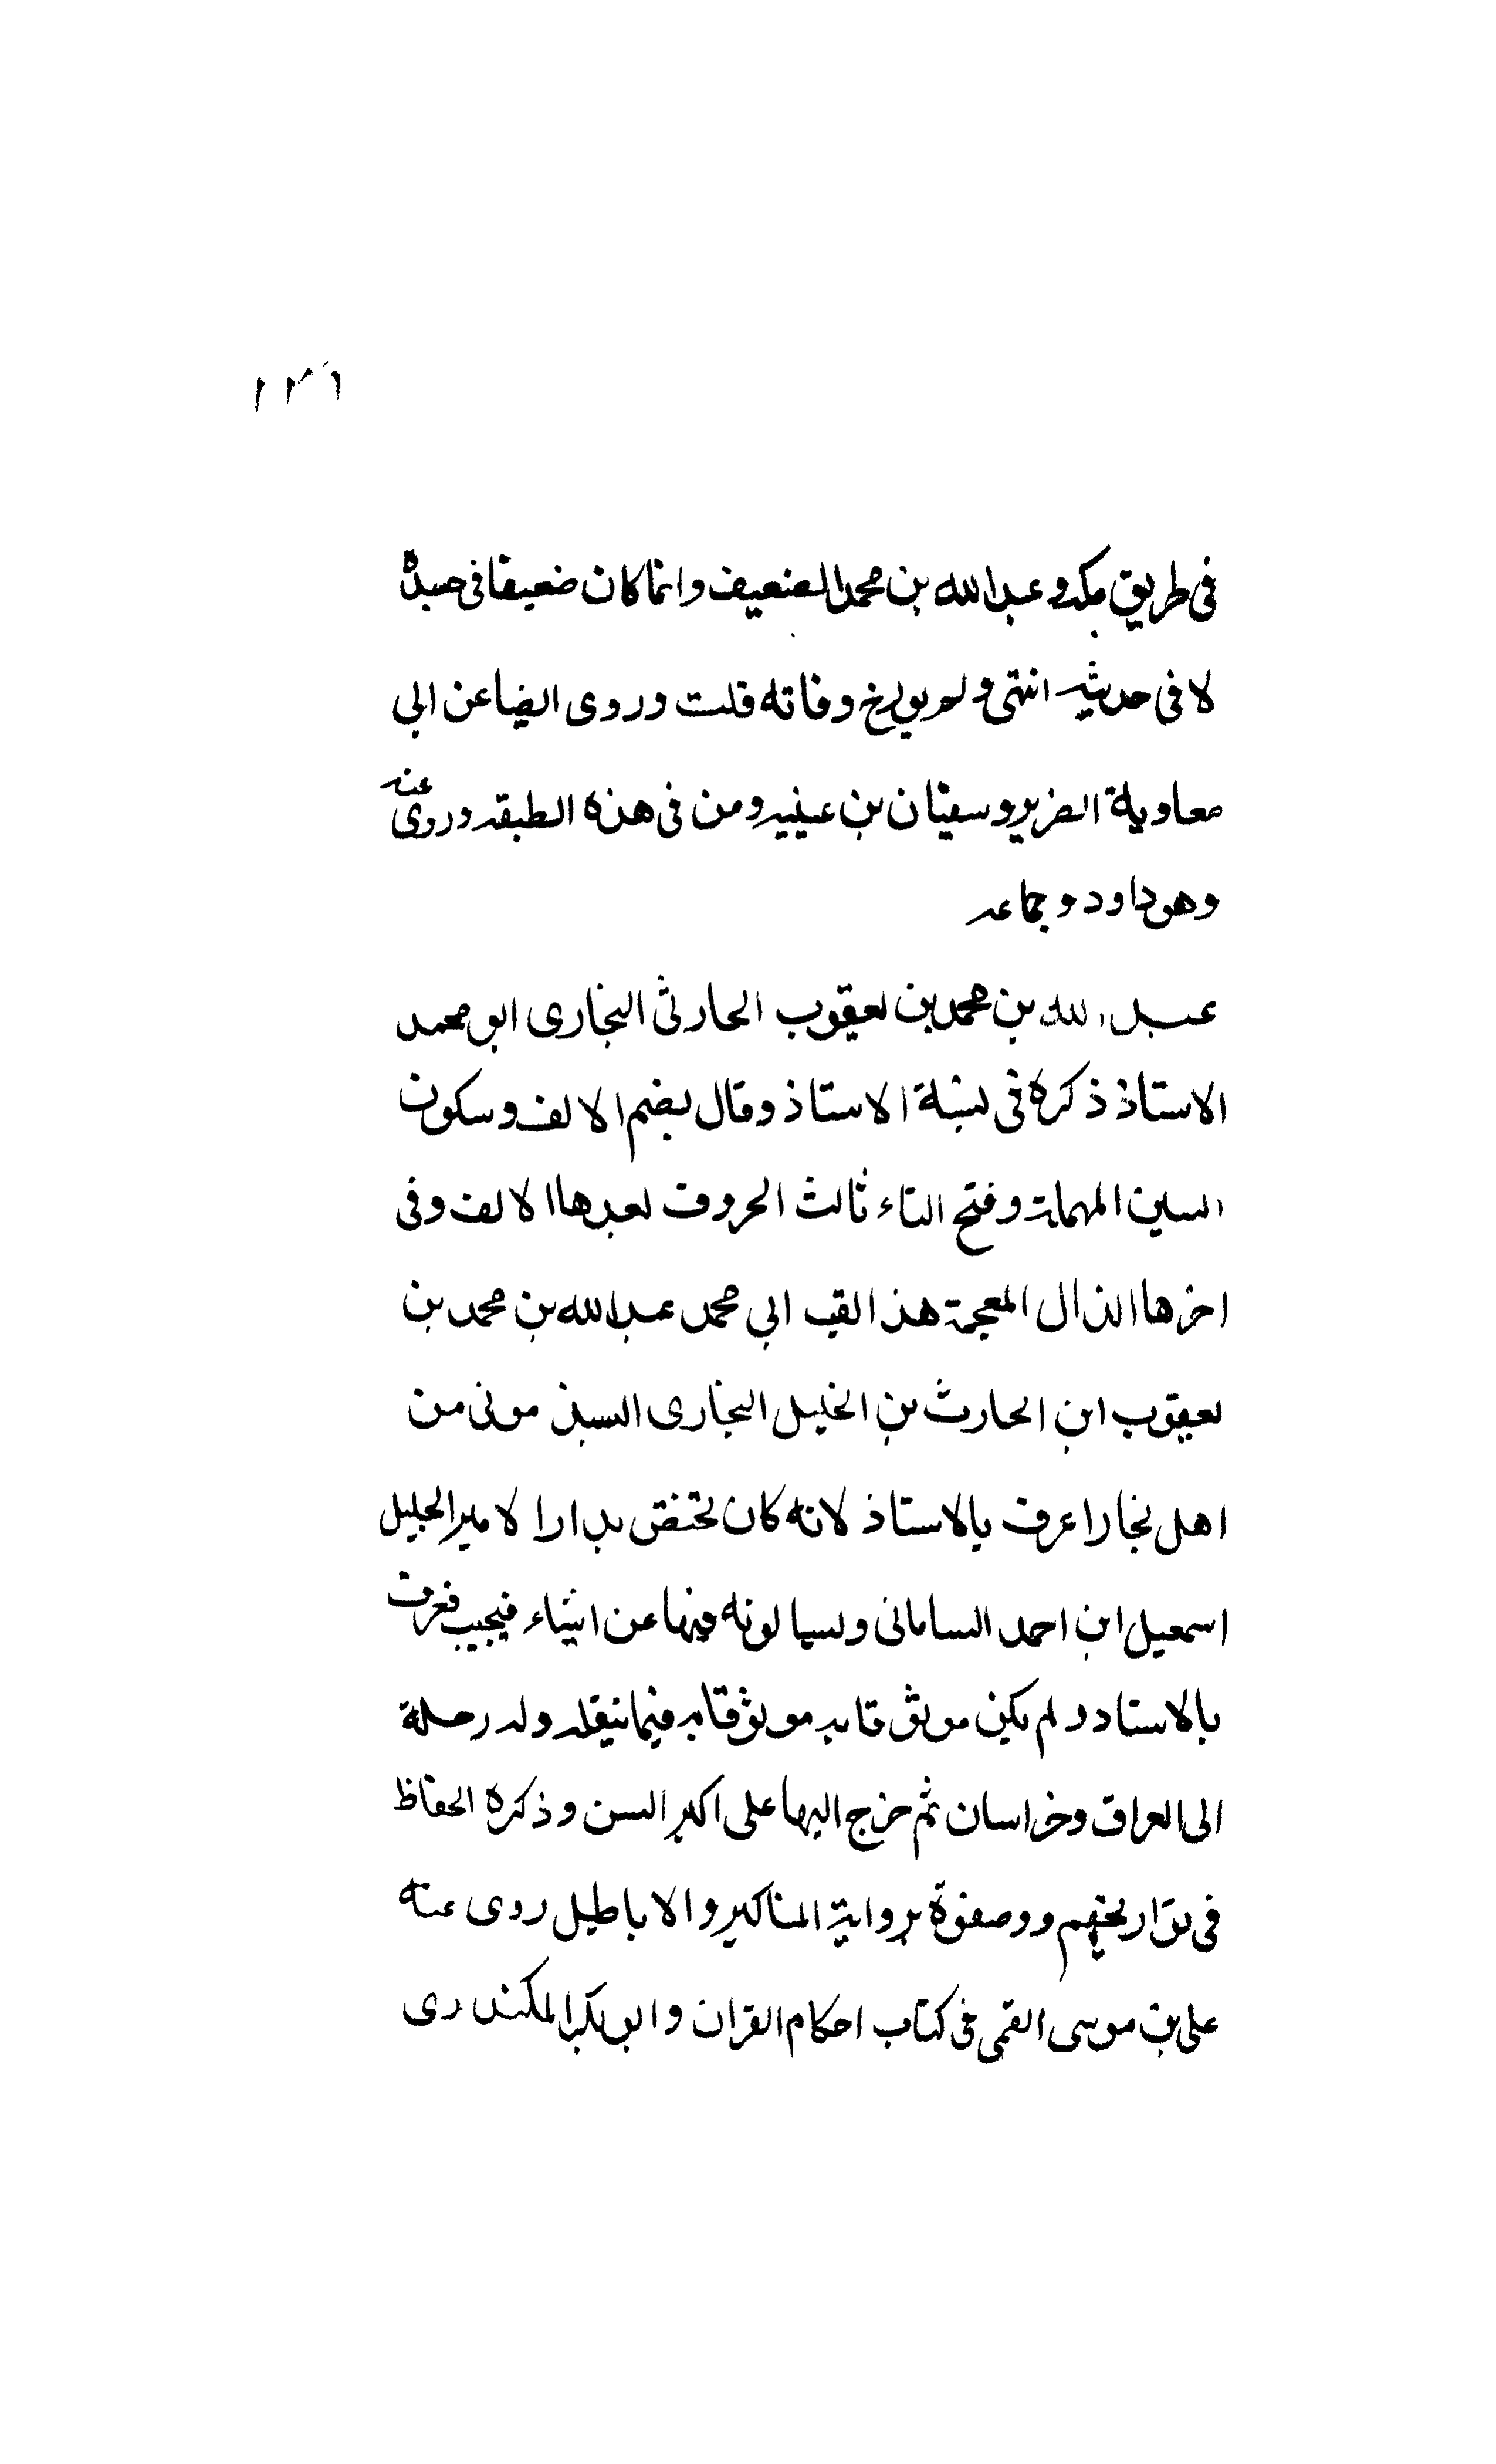 ١٣٦
فى طريق مكة وعبدالله بن محمد الضعيف وانما كان ضعيفا فى جسده
لا فى حديثه انتهى ولم يورخ وفاته قلت وروى ايضا عن ابى
معاوية الضرير وسفيان بن عيينه ومن فى هذه الطبقه وروى عنه
وهو داود وجماعه
عبد الله بن محمد بن يعقوب الحارثى البخارى ابو محمد
الاستاذ ذكره فى نسبة الاستاذ وقال بضم الالف وسكون
السين المهملة وفتح التاء ثالث الحروف بعدها الالف وفى
اخرها الذال المعجمة هذا لقب ابي محمد عبدالله بن محمد بن
يعقوب ابن الحارث بن الخليل البخارى السبذمونى من
اهل بخارا عرف بالاستاذ لانه كان يختص بدارا لامير الجليل
اسمعيل ابن احمد السامانى ويسيالونه فيها عن اشياء فيجيب فعرف
بالاستاد ولم يكن موثوقا به موثوقا به فيما ينقله وله رحلة
الى العراق وخراسان ثم خرج اليها على اكبر السن وذكره الحفاظ
فى تواريخهم ووصفوة برواية المناكير والاباطيل روى عنه
على بن موسى القمى فى كتاب احكام القران وابو بكر المكندرى